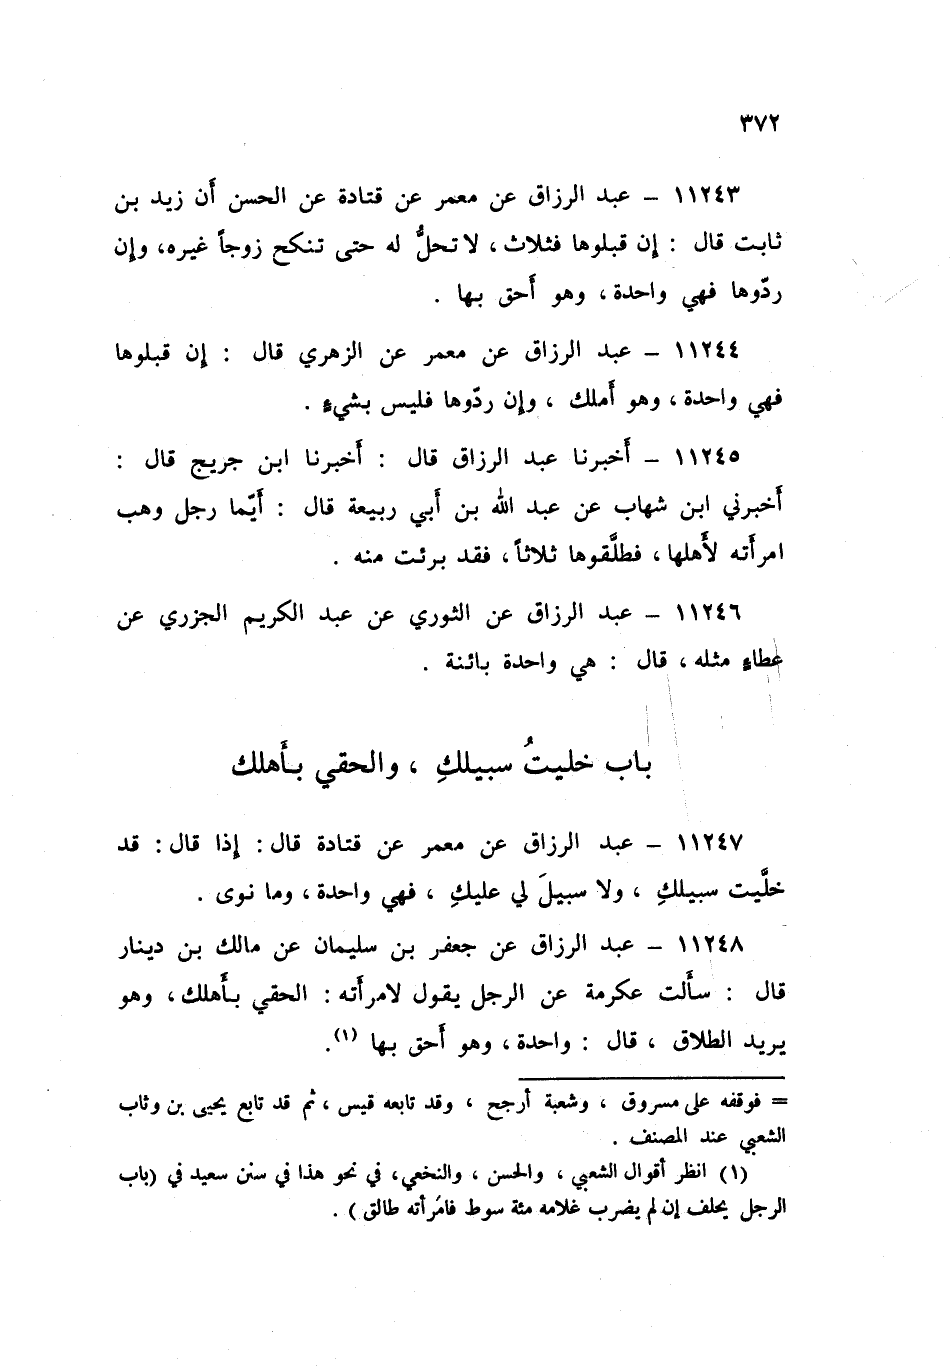 ٣٧٢
١١٢٤٣ – عبد الرزاق عن معمر عن قتادة عن الحسن أَن زيد بن
ثابت قال : إن قبلوها فثلاث ، لا تحلُّ له حتى تنكح زوجاً غيره، وإن
ردّوها فهي واحدة ، وهو أَحق بها .
١١٢٤٤ – عبد الرزاق عن معمر عن الزهري قال : إن قبلوها
فهي واحدة ، وهو أَملك ، وإن ردّوها فليس بشيءٍ .
١١٢٤٥ – أَخبرنا عبد الرزاق قال : أَخبرنا ابن جريج قال :
أَخبرني ابن شهاب عن عبد الله بن أَبي ربيعة قال : أَيّما رجل وهب
امرأَته لأَهلها ، فطلَّقوها ثلاثاً ، فقد برئت منه .
١١٢٤٦ – عبد الرزاق عن الثوري عن عبد الكريم الجزري عن
عطاءٍ مثله ، قال : هي واحدة بائنة .
باب خليتُ سبيلكِ ، والحقي بأَهلك
١١٢٤٧ – عبد الرزاق عن معمر عن قتادة قال : إذا قال : قد
خلَّيت سبيلكِ ، ولا سبيلَ لي عليكِ ، فهي واحدة ، وما نوى .
١١٢٤٨ – عبد الرزاق عن جعفر بن سليمان عن مالك بن دينار
قال : سأَلت عكرمة عن الرجل يقول لامرأَته : الحقي بأَهلك ، وهو
يريد الطلاق ، قال : واحدة ، وهو أَحق بها (١).
= فوقفه على مسروق ، وشعبة أرجح ، وقد تابعه قيس ، ثم قد تابع يحيى بن وثاب
الشعبي عند المصنف .
(١) انظر أقوال الشعبي ، والحسن ، والنخعي، في نحو هذا في سنن سعيد في (باب
الرجل يحلف إن لم يضرب غلامه مئة سوط فامرأته طالق ) .